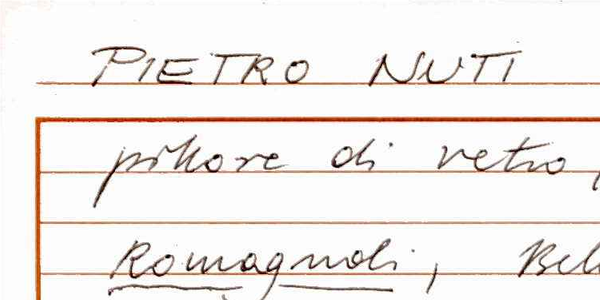 PIETRO NUTI
pittore di vetro,
Romagnoli,